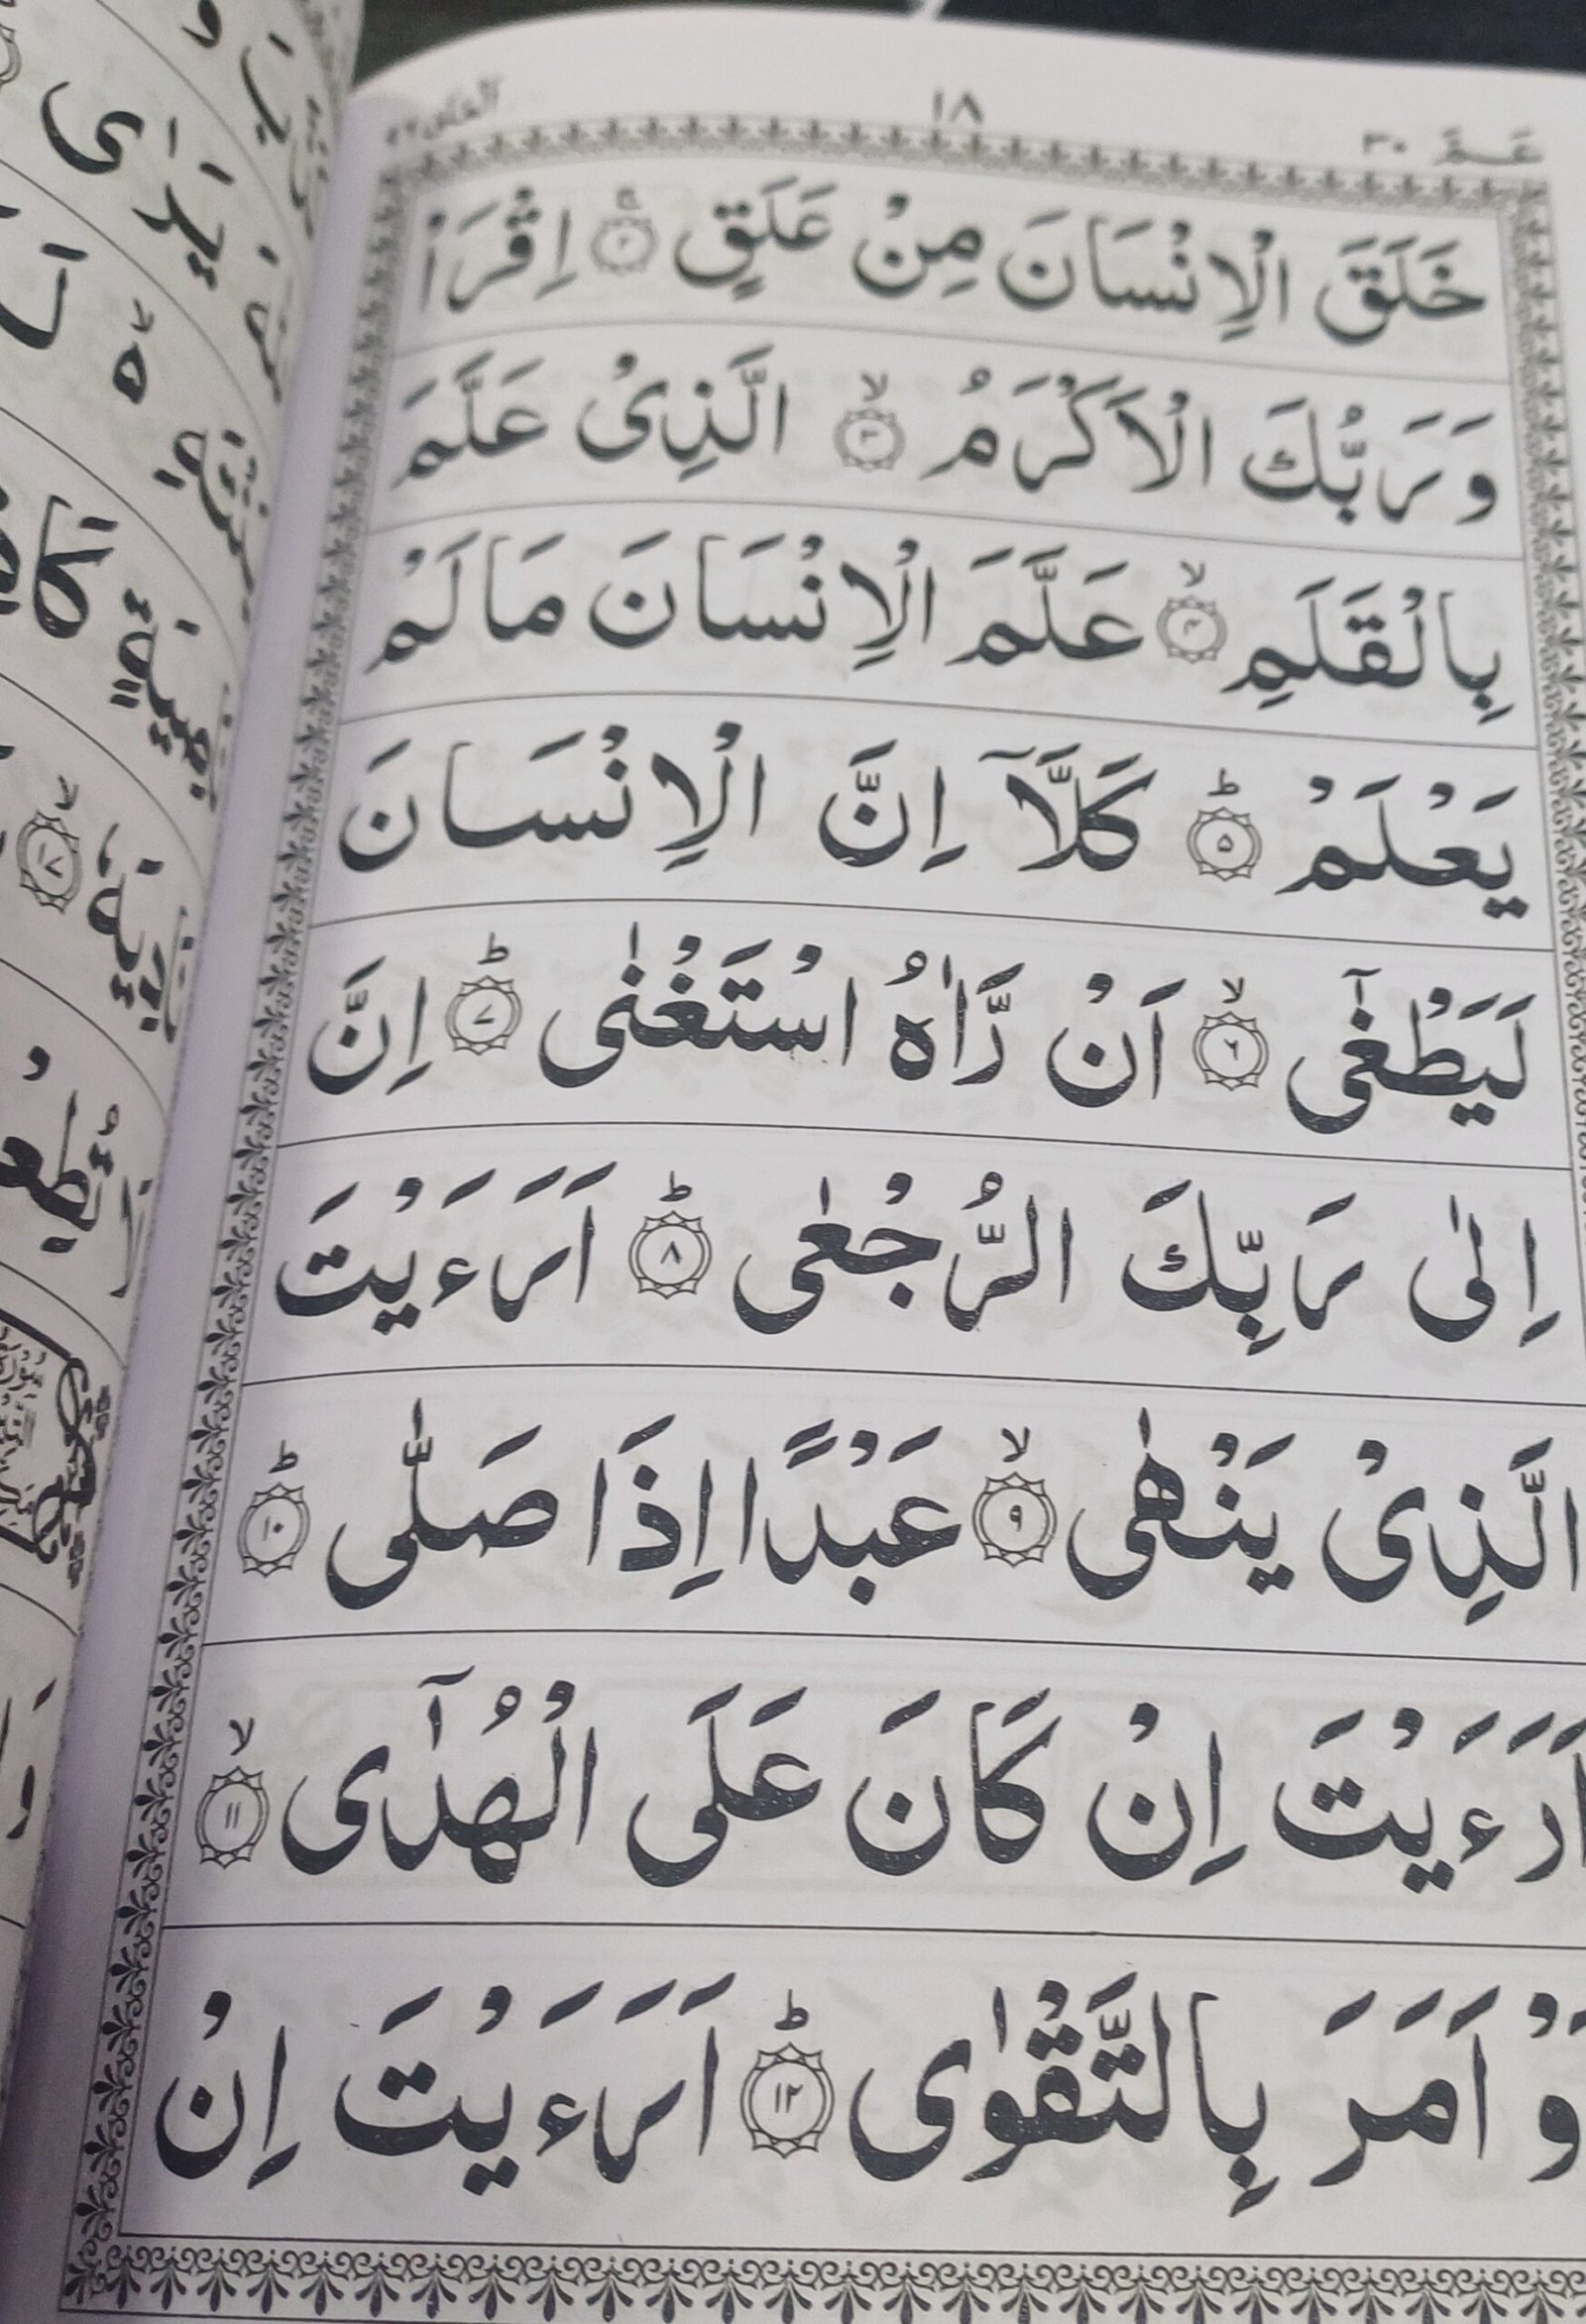 عَمَّ ٣٠
١٨
العلق ٩٦
خَلَقَ الْاِنْسَانَ مِنْ عَلَقٍ ۚ‏﴿۲﴾ اِقْرَاْ
وَرَبُّكَ الْاَكْرَمُ ۙ‏﴿۳﴾ الَّذِىْ عَلَّمَ
بِالْقَلَمِ ۙ‏﴿۴﴾ عَلَّمَ الْاِنْسَانَ مَالَمْ
يَعْلَمْ ؕ‏﴿۵﴾ كَلَّاۤ اِنَّ الْاِنْسَانَ
لَيَطْغٰٓى ۙ‏﴿۶﴾ اَنْ رَّاٰهُ اسْتَغْنٰى ؕ‏﴿۷﴾ اِنَّ
اِلٰى رَبِّكَ الرُّجْعٰى ؕ‏﴿۸﴾ اَرَءَيْتَ
الَّذِىْ يَنْهٰى ۙ‏﴿۹﴾ عَبْدًا اِذَا صَلّٰى ؕ‏﴿۱۰﴾
اَرَءَيْتَ اِنْ كَانَ عَلَى الْهُدٰٓى ۙ‏﴿۱۱﴾
اَوْ اَمَرَ بِالتَّقْوٰى ؕ‏﴿۱۲﴾ اَرَءَيْتَ اِنْ